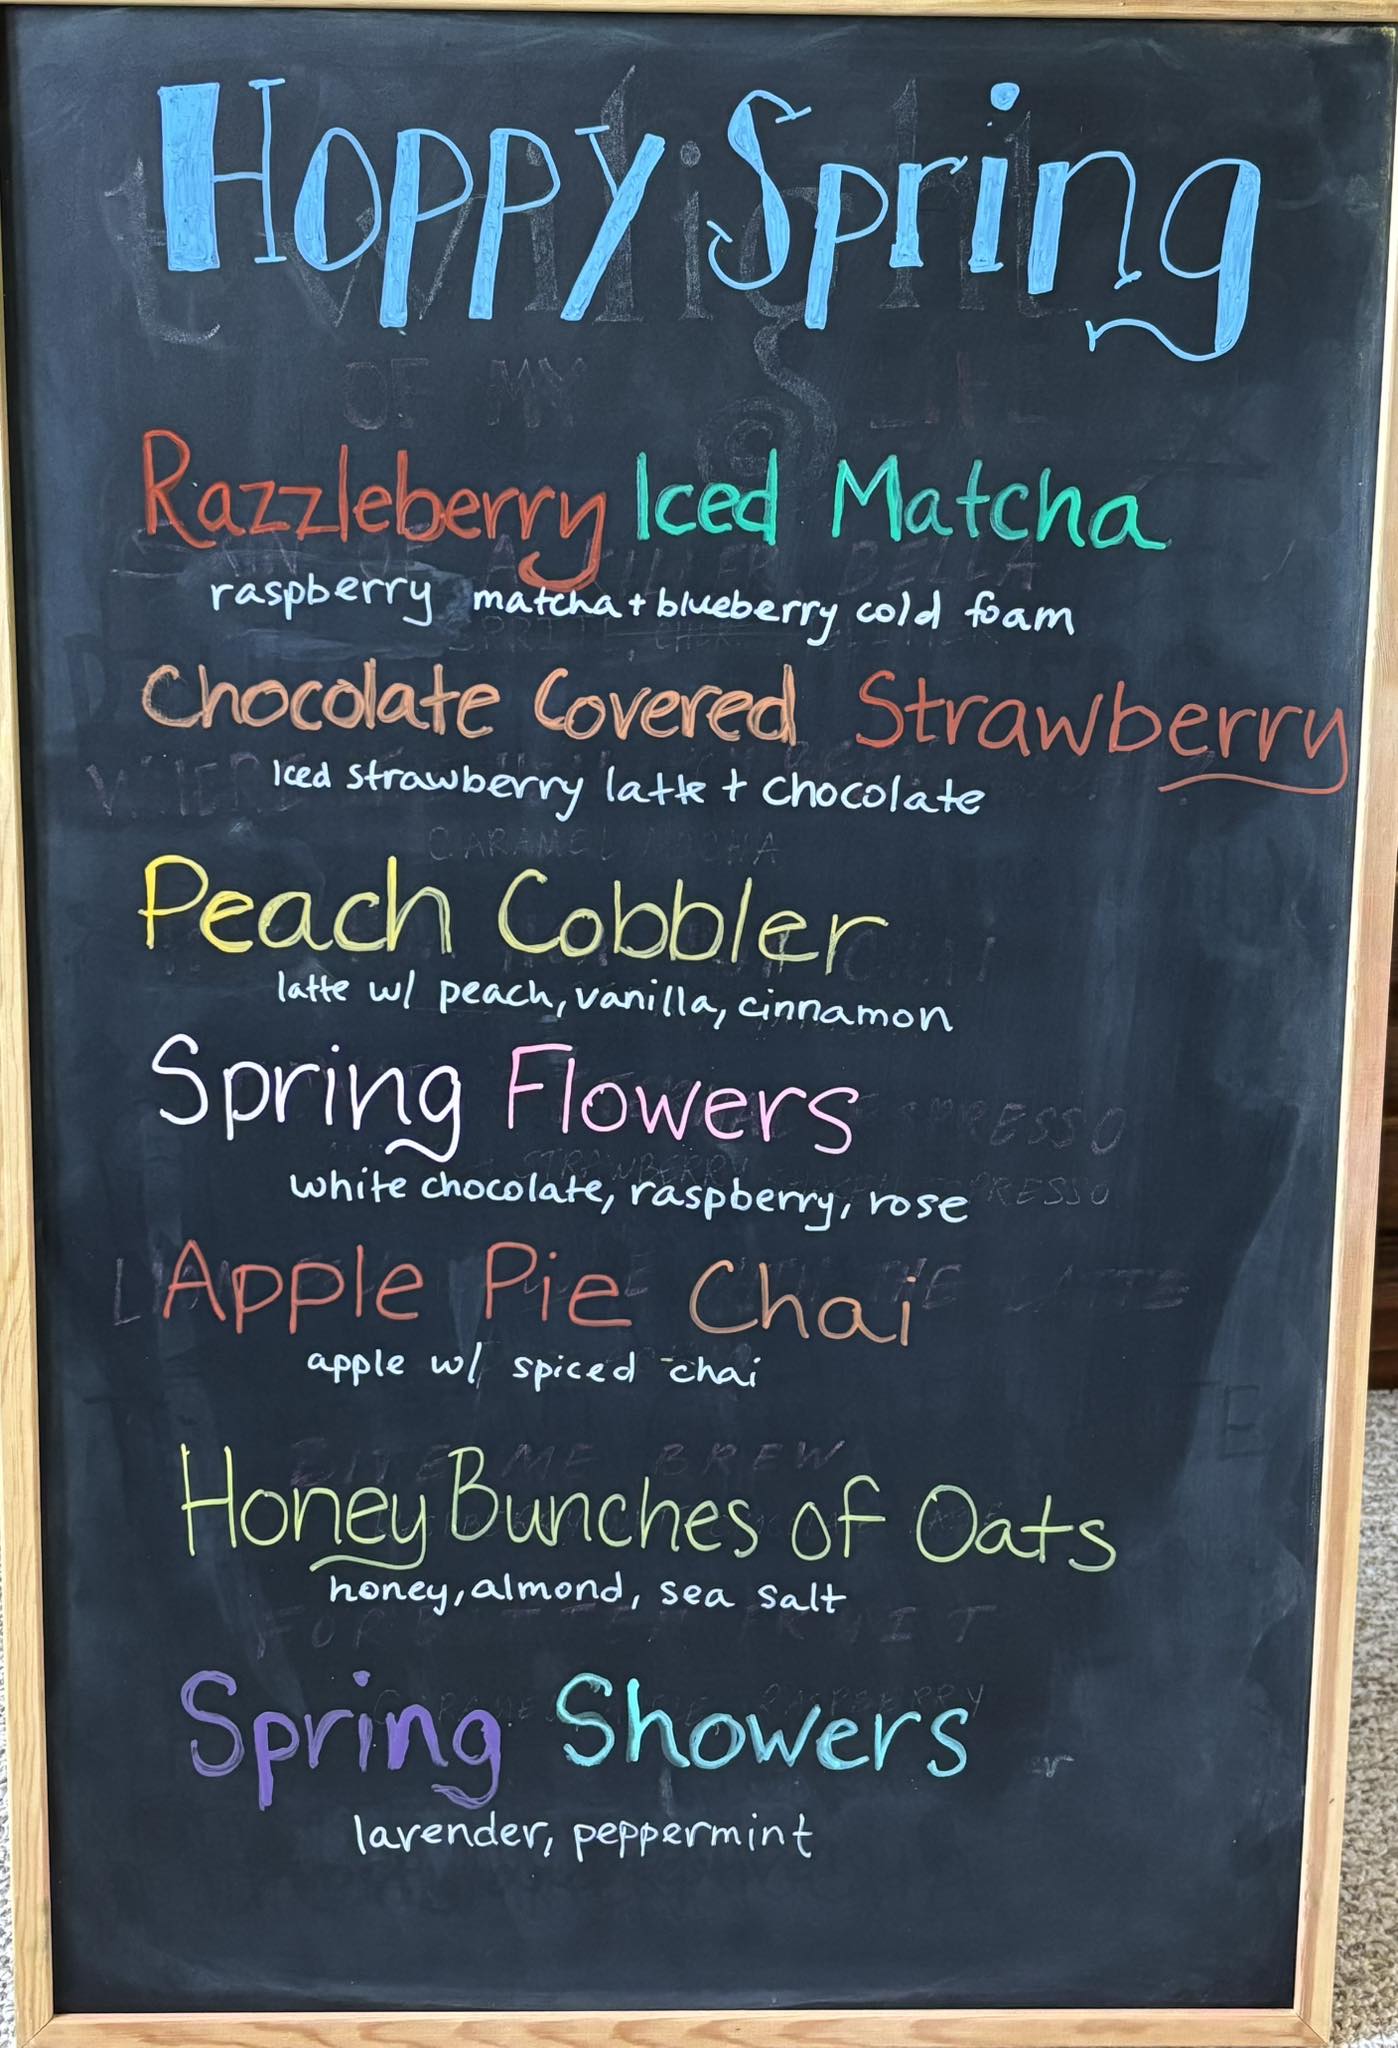 Hoppy Spring
Razzleberry Iced Matcha
raspberry matcha + blueberry cold foam
Chocolate Covered Strawberry
Iced strawberry latte + chocolate
Peach Cobbler
latte w/ peach, vanilla, cinnamon
Spring Flowers
white chocolate, raspberry, rose
Apple Pie Chai
apple w/ spiced chai
Honey Bunches of Oats
honey, almond, sea salt
Spring Showers
lavender, peppermint